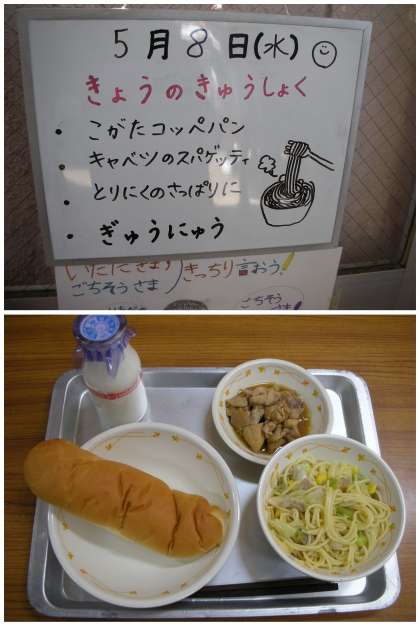 5月8日(水)
きょうのきゅうしょく
・こがたコッペパン
・キャベツのスパゲッティ
・とりにくのさっぱりに
・ぎゅうにゅう
いただきます
ごちそうさま
きっちり言おう!
ごちそう